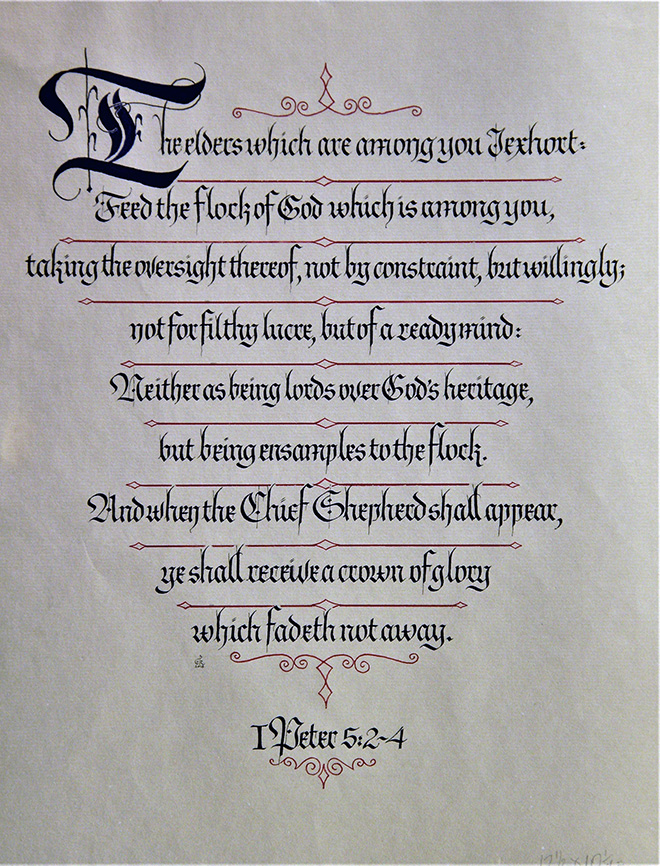 The elders which are among you I exhort:
Feed the flock of God which is among you,
taking the oversight thereof, not by constraint, but willingly;
not for filthy lucre, but of a ready mind:
Neither as being lords over God's heritage,
but being ensamples to the flock.
And when the Chief Shepherd shall appear,
ye shall receive a crown of glory
which fadeth not away.
1 Peter 5:2-4